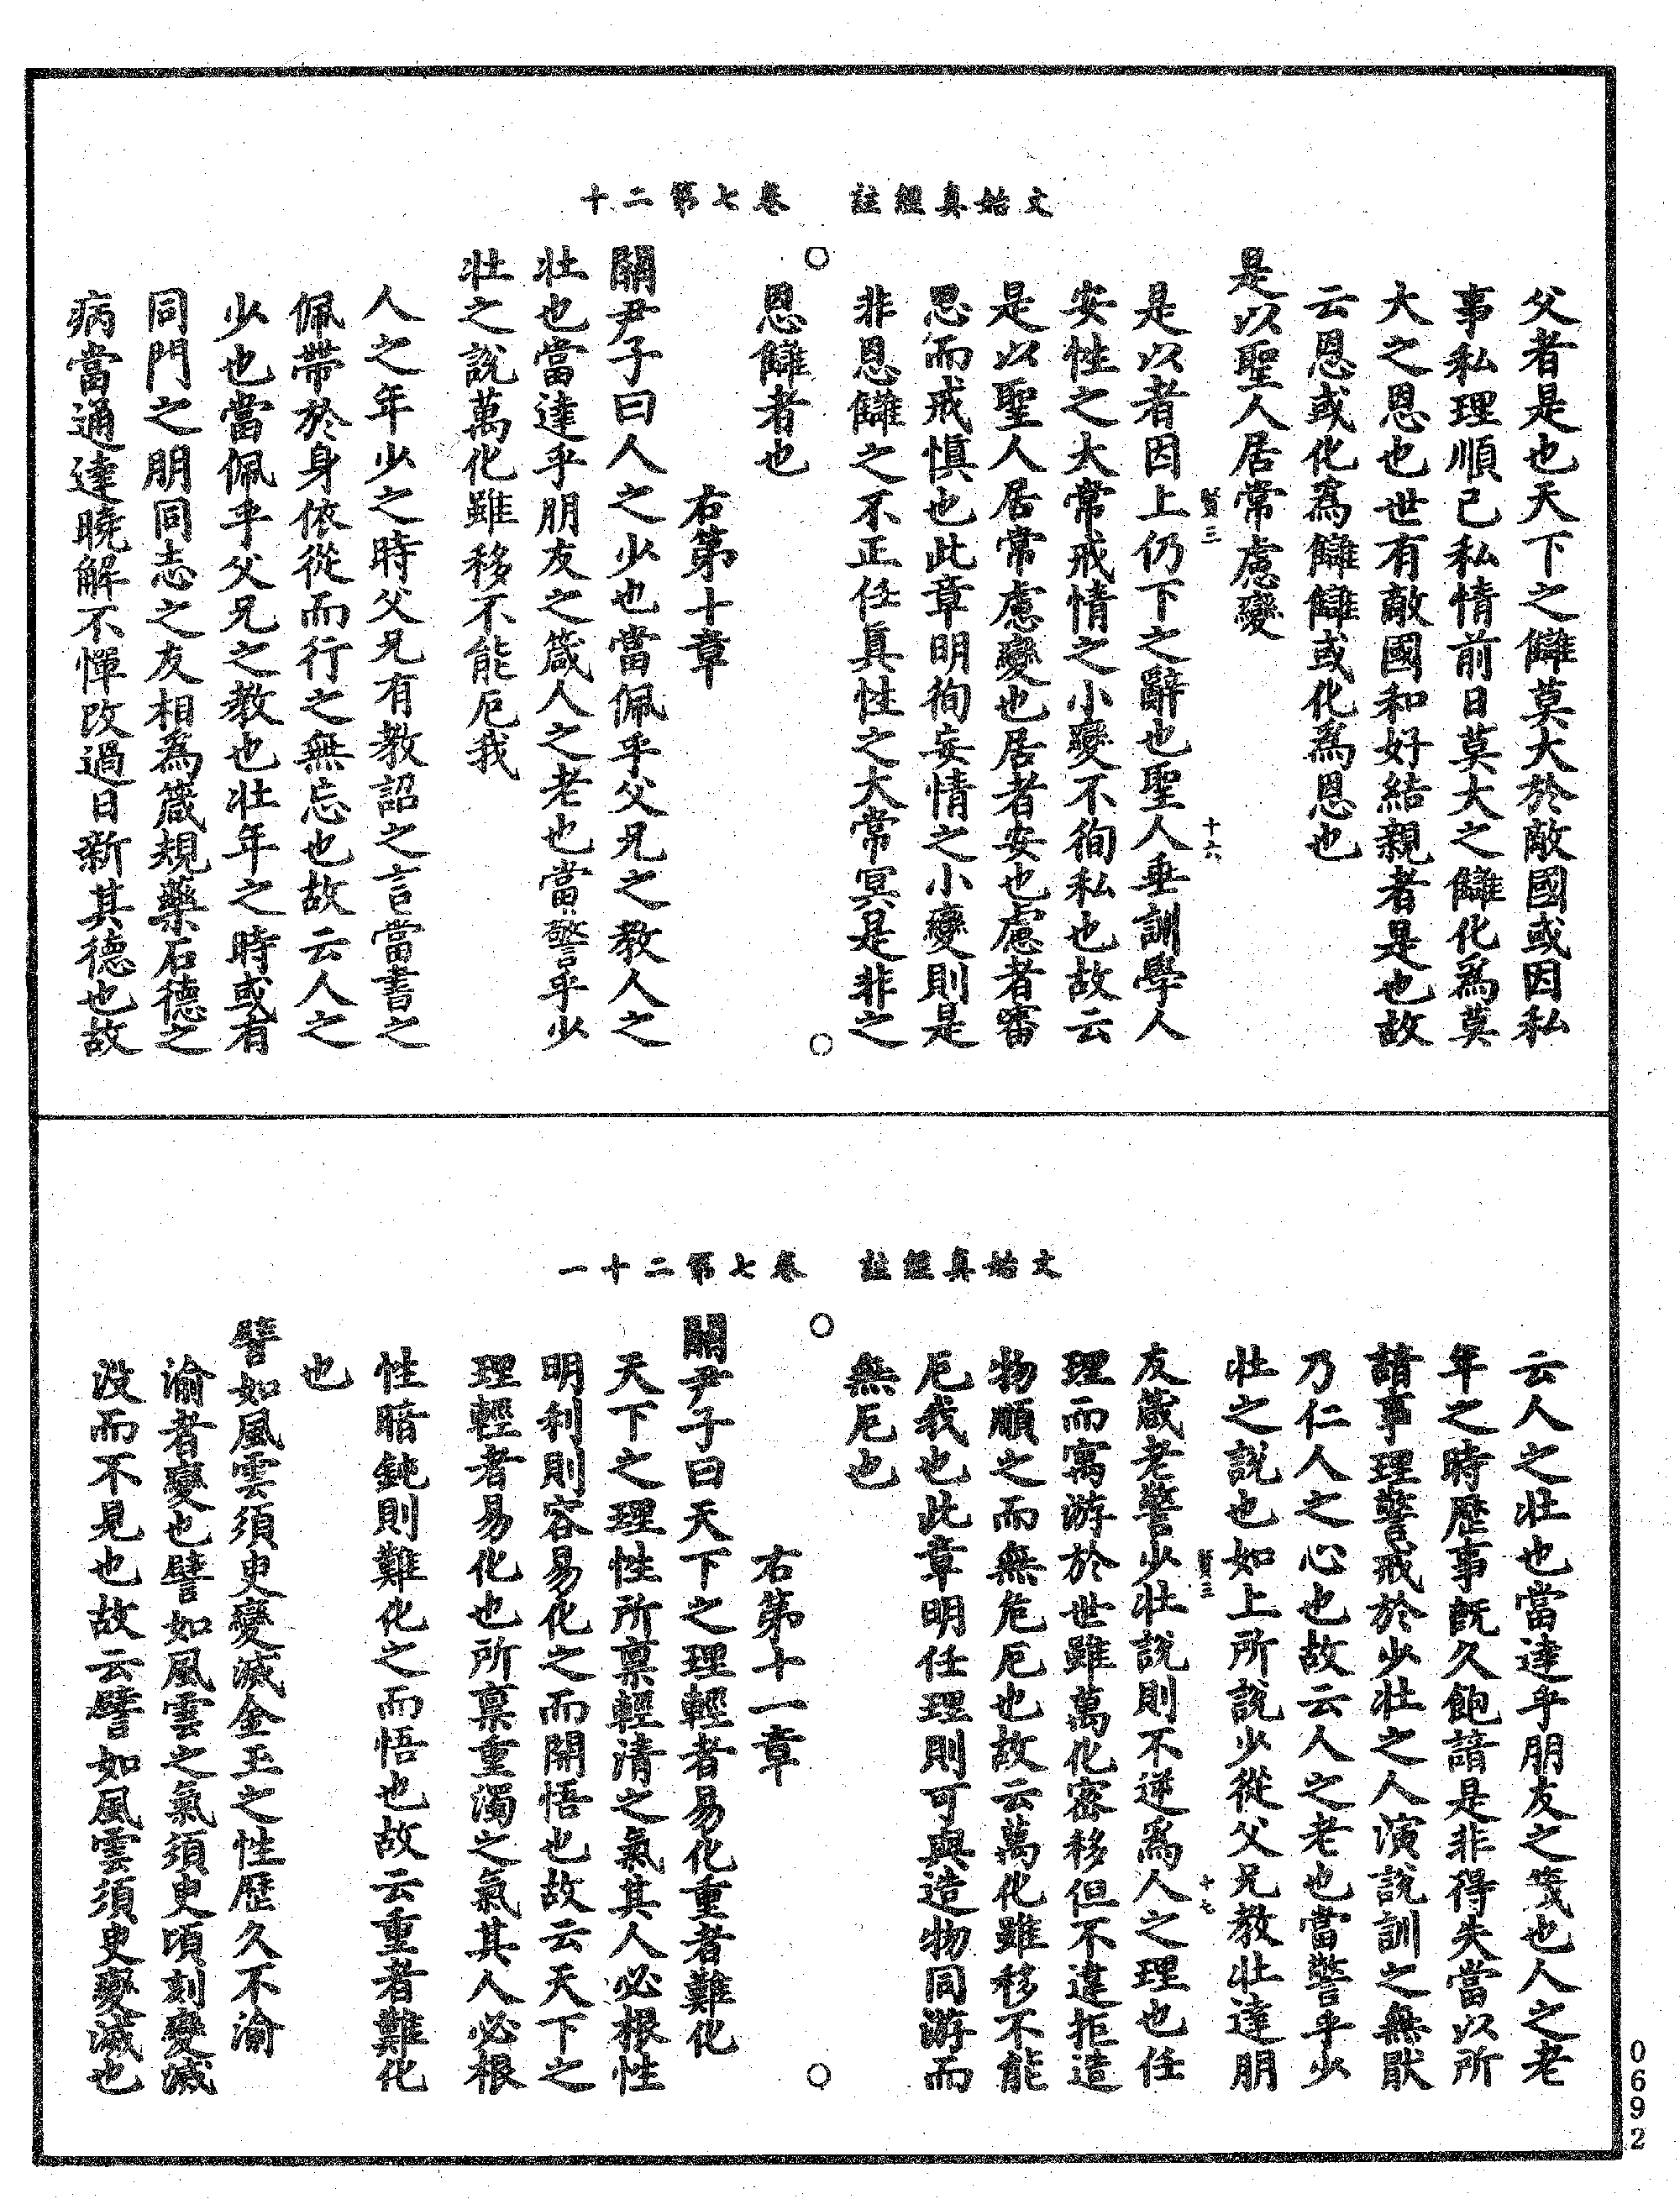 文始真經註　卷七第二十
父者是也天下之讎莫大於敵國或因私
事私理順己私情前日莫大之讎化爲莫
大之恩也世有敵國和好結親者是也故
云恩或化爲讎讎或化爲恩也
是以聖人居常慮變
賢三　十六
是以者因上仍下之辭也聖人垂訓學人
安性之太常戒情之小變不徇私也故云
是以聖人居常慮變也居者安也慮者審
思而戒慎也此章明徇妄情之小變則是
非恩讎之不正任真性之大常冥是非之
恩讎者也
○　○
右第十章
關尹子曰人之少也當佩乎父兄之教人之
壯也當達乎朋友之箴人之老也當警乎少
壯之說萬化雖移不能厄我
人之年少之時父兄有教詔之言當書之
佩帶於身依從而行之無忘也故云人之
少也當佩乎父兄之教也壯年之時或有
同門之朋同志之友相為箴規藥石德之
病當通達曉解不憚改過日新其德也故
文始真經註　卷七第二十一
云人之壯也當達乎朋友之箋也人之老
年之時歷事既久飽諳是非得失當以所
諳事理警戒於少壯之人演說訓之無厭
乃仁人之心也故云人之老也當警乎少
壯之說也如上所說少從父兄教壯達朋
賢三　十七
友箴老警少壯說則不逆爲人之理也任
理而寓游於世雖萬化密移但不違拒造
物順之而無危厄也故云萬化雖移不能
厄我也此章明任理則可與造物同游而
無厄也
○　○
右第十一章
關尹子曰天下之理輕者易化重者難化
天下之理性所稟輕清之氣其人必根性
明利則容易化之而開悟也故云天下之
理輕者易化也所稟重濁之氣其人必根
性暗鈍則難化之而悟也故云重者難化
也
譬如風雲須臾變滅金玉之性歷久不渝
渝者變也譬如風雲之氣須臾頃刻變滅
沒而不見也故云譬如風雲須臾變滅也
0692